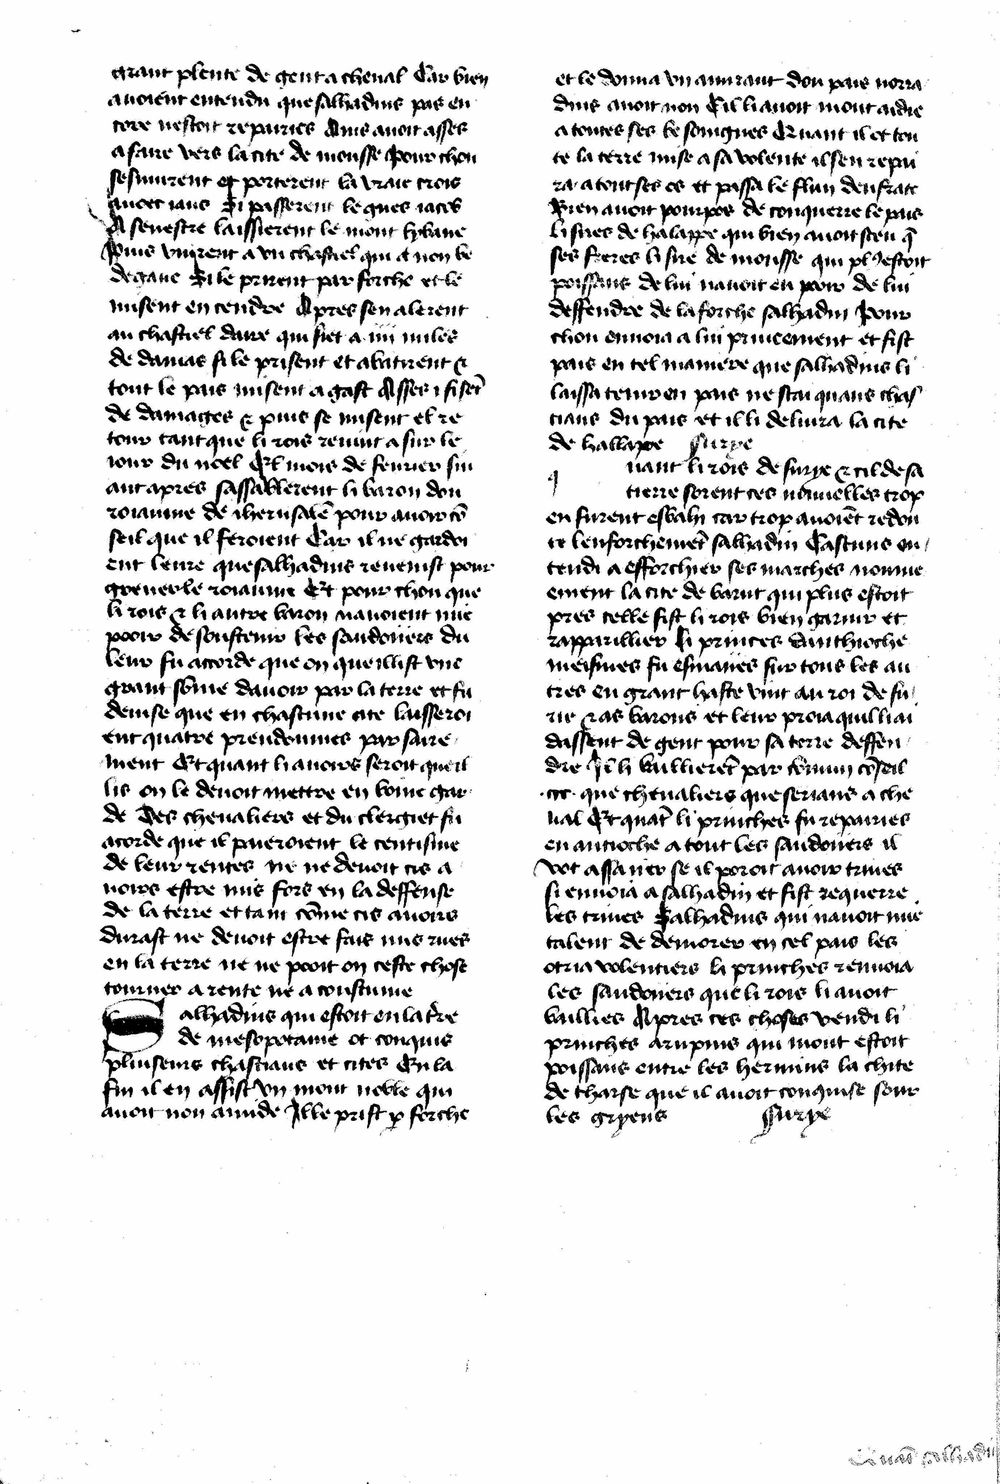 grant plente de gent a cheval Car bien
avoient entendu que salhadins pas en
core nestoit repairies Ains avoit asses
a faire vers la cite de mousse Pour chou
sesmurent et porterent la vraie crois
avoec iaus Si passerent le gues iacob
A senestre laissierent le mont lybane
Puis vinrent a un chastiel qui a non be
degane Si le prirent par forche et le
misent en cendre Apres sen alerent
au chastiel daire qui siet a .iiii. miles
de damas si le prisent et abatirent &
tout le pais misent a gast Asses i fisent̄
de damages & puis se misent el re
tour tant que li rois revint a sur le
iour du noel El mois de fevrier siu
ant apres sassablerent li baron dou
roiaume de iherusalē pour avoir cō
seil que il feroient Car il ne gardoi
ent leure que salhadins revenist pour
grever le roiaume Et pour chou que
li rois & li autre baron navoient mie
pooir de soustenir les saudoiers du
leur fu acorde que on queillist une
grant sōme davoir par la terre et fu
devise que en chascune cite laisseroi
ent quatre preudommes par saire
ment Et quant li avoirs seroit queil
lis on le devoit mettre en boine gar
de Des chevaliers et du clergiet fu
acorde que il paieroient le centisme
de leur rentes ne ne devoit cis a
voirs estre mis fors en la deffense
de la terre et tant cōme cis avoirs
durast ne devoit estre fais nus rues
en la terre ne ne pooit on ceste chose
tourner a rente ne a coustume
Salhadins qui estoit en la tr̄e
de mesopotame ot conquis
pluiseurs chastiaus et cites En la
fin il en assist un mout noble qui
avoit non amide Il le prist p forche
et le donna un amiraut dou pais norra
dins avoit non Cil li avoit mout aidie
a toutes ses besoingnes Quant il et tou
te la terre mise a sa volente il sen repai
ra a tout ses os et passa le flun deufrate
Bien avoit pourpos de conquerre le pais
li sires de halappe qui bien avoit sceu q̄
ses freres li sire de mousse qui pl9 estoit
poissans de lui navoit eu pooir de lui
deffendre de la forche salhadin Pour
chou envoia a lui priveement et fist
pais en tel maniere que salhadins li
laissa tenir en pais ne scai quans chas
tiaus du pais et il li delivra la cite
de hallappe Surye
q uant li rois de surye & cil de sa
tierre sorent ces nouvelles trop
en furent esbahi car trop avoiēt redou
te lenforchemēt salhadin Cascuns en
tendi a efforchier ses marches nomme
ement la cite de barut qui plus estoit
pres celle fist li rois bien garnir et
rapparillier Li princes danthioche
meismes fu esmaiies sur tous les au
tres en grant haste vint au roi de su
rie & as barons et leur proia quil liai
dassent de gent pour sa terre deffen
dre Il li baillierēt par cōmun cōseil
.ccc. que chevaliers que serians a che
val Et quāt li princhies fu repairies
en antioche a tout les saudoiers il
vot assaiier se il poroit avoir trives
si envoia a salhadin et fist requerre
les trives Salhadins qui navoit mie
talent de demorer en cel pais les
otria volentiers li prinches renvoia
les saudoiers que li rois li avoit
baillies Apres ces choses vendi li
prinches a rupins qui mout estoit
poissans entre les hermins la chite
de tharse que il avoit conquise sour
les gryeus Surye